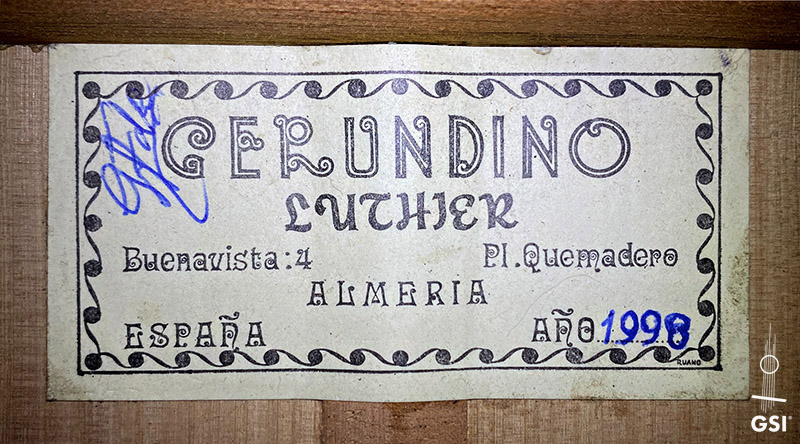 GERUNDINO
LUTHIER
Buenavista:4 Pl. Quemadero
ALMERIA
ESPAÑA AÑO 1998
RUANO
GSI